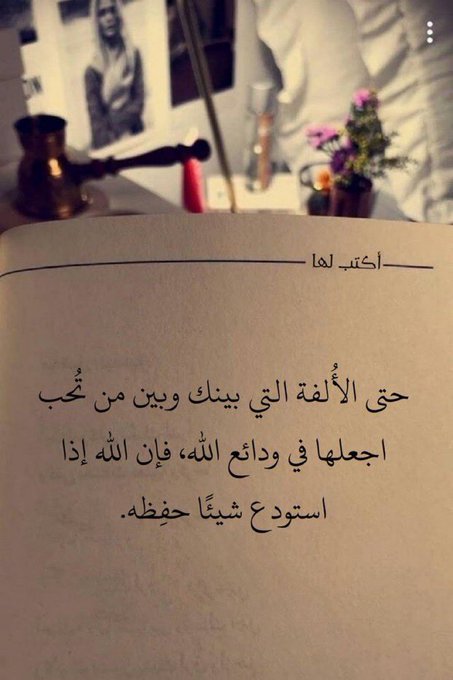 أكتب لها
حتى الأُلفة التي بينك وبين من تُحب
اجعلها في ودائع الله، فإن الله إذا
استودع شيئًا حفِظه.